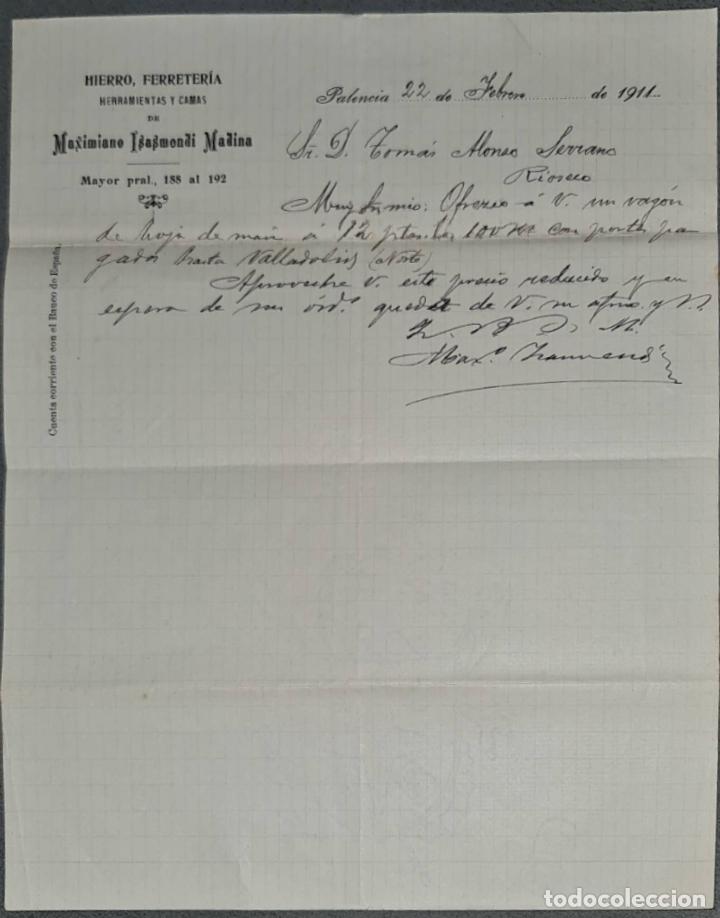 HIERRO, FERRETERÍA
HERRAMIENTAS Y CAMAS
DE
Maximiano Isasmendi Madina
Mayor pral., 188 al 192
Cuenta corriente con el Banco de España.
Palencia 22 de Febrero de 1911
Sr. D. Tomás Alonso Serrano
Rioseco
Muy Sr. mio: Ofrezco á V. un vagón
de hoja de maiz á 12 ptas. los 100 Kº con portes pa
gados hasta Valladolid (Norte)
Aproveche V. este precio reducido y en
espera de sus órd.s quedo de V. su afmo. y
M.
Max.º
todocoleccion